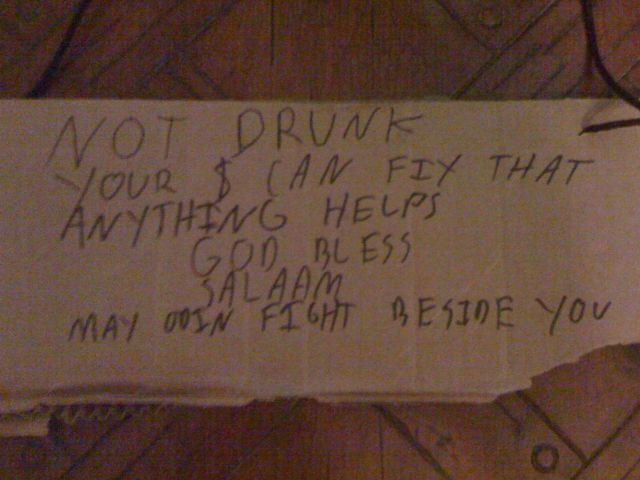 NOT DRUNK
YOUR $ CAN FIX THAT
ANYTHING HELPS
GOD BLESS
SALAAM
MAY ODIN FIGHT BESIDE YOU